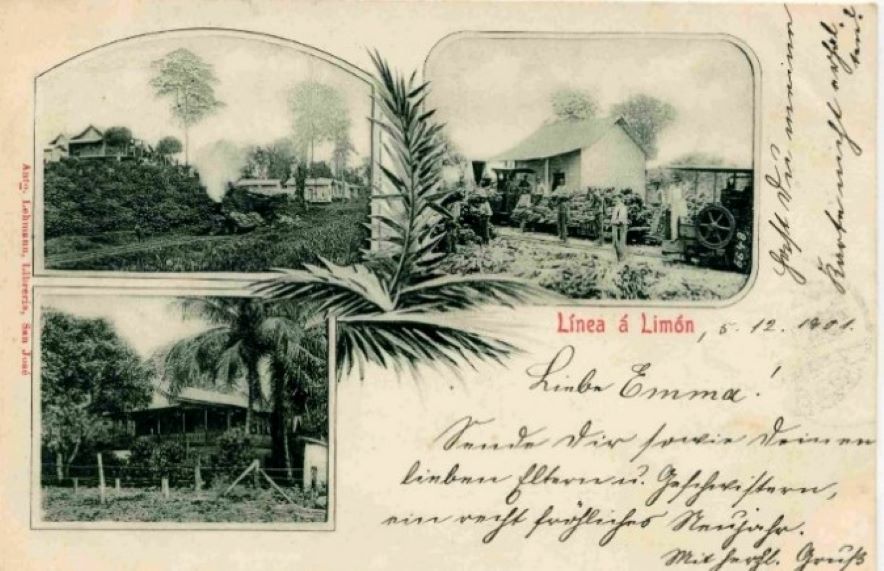 Anto. Lehmann, Librería, San José
Línea á Limón
, 5. 12. 1901.
Liebe Emma!
Sende Dir sowie Deinen
lieben Eltern u. Geschwistern,
ein recht fröhliches Neujahr.
Mit herzl. Gruß
Hast Du meine
Karte nicht erhal-